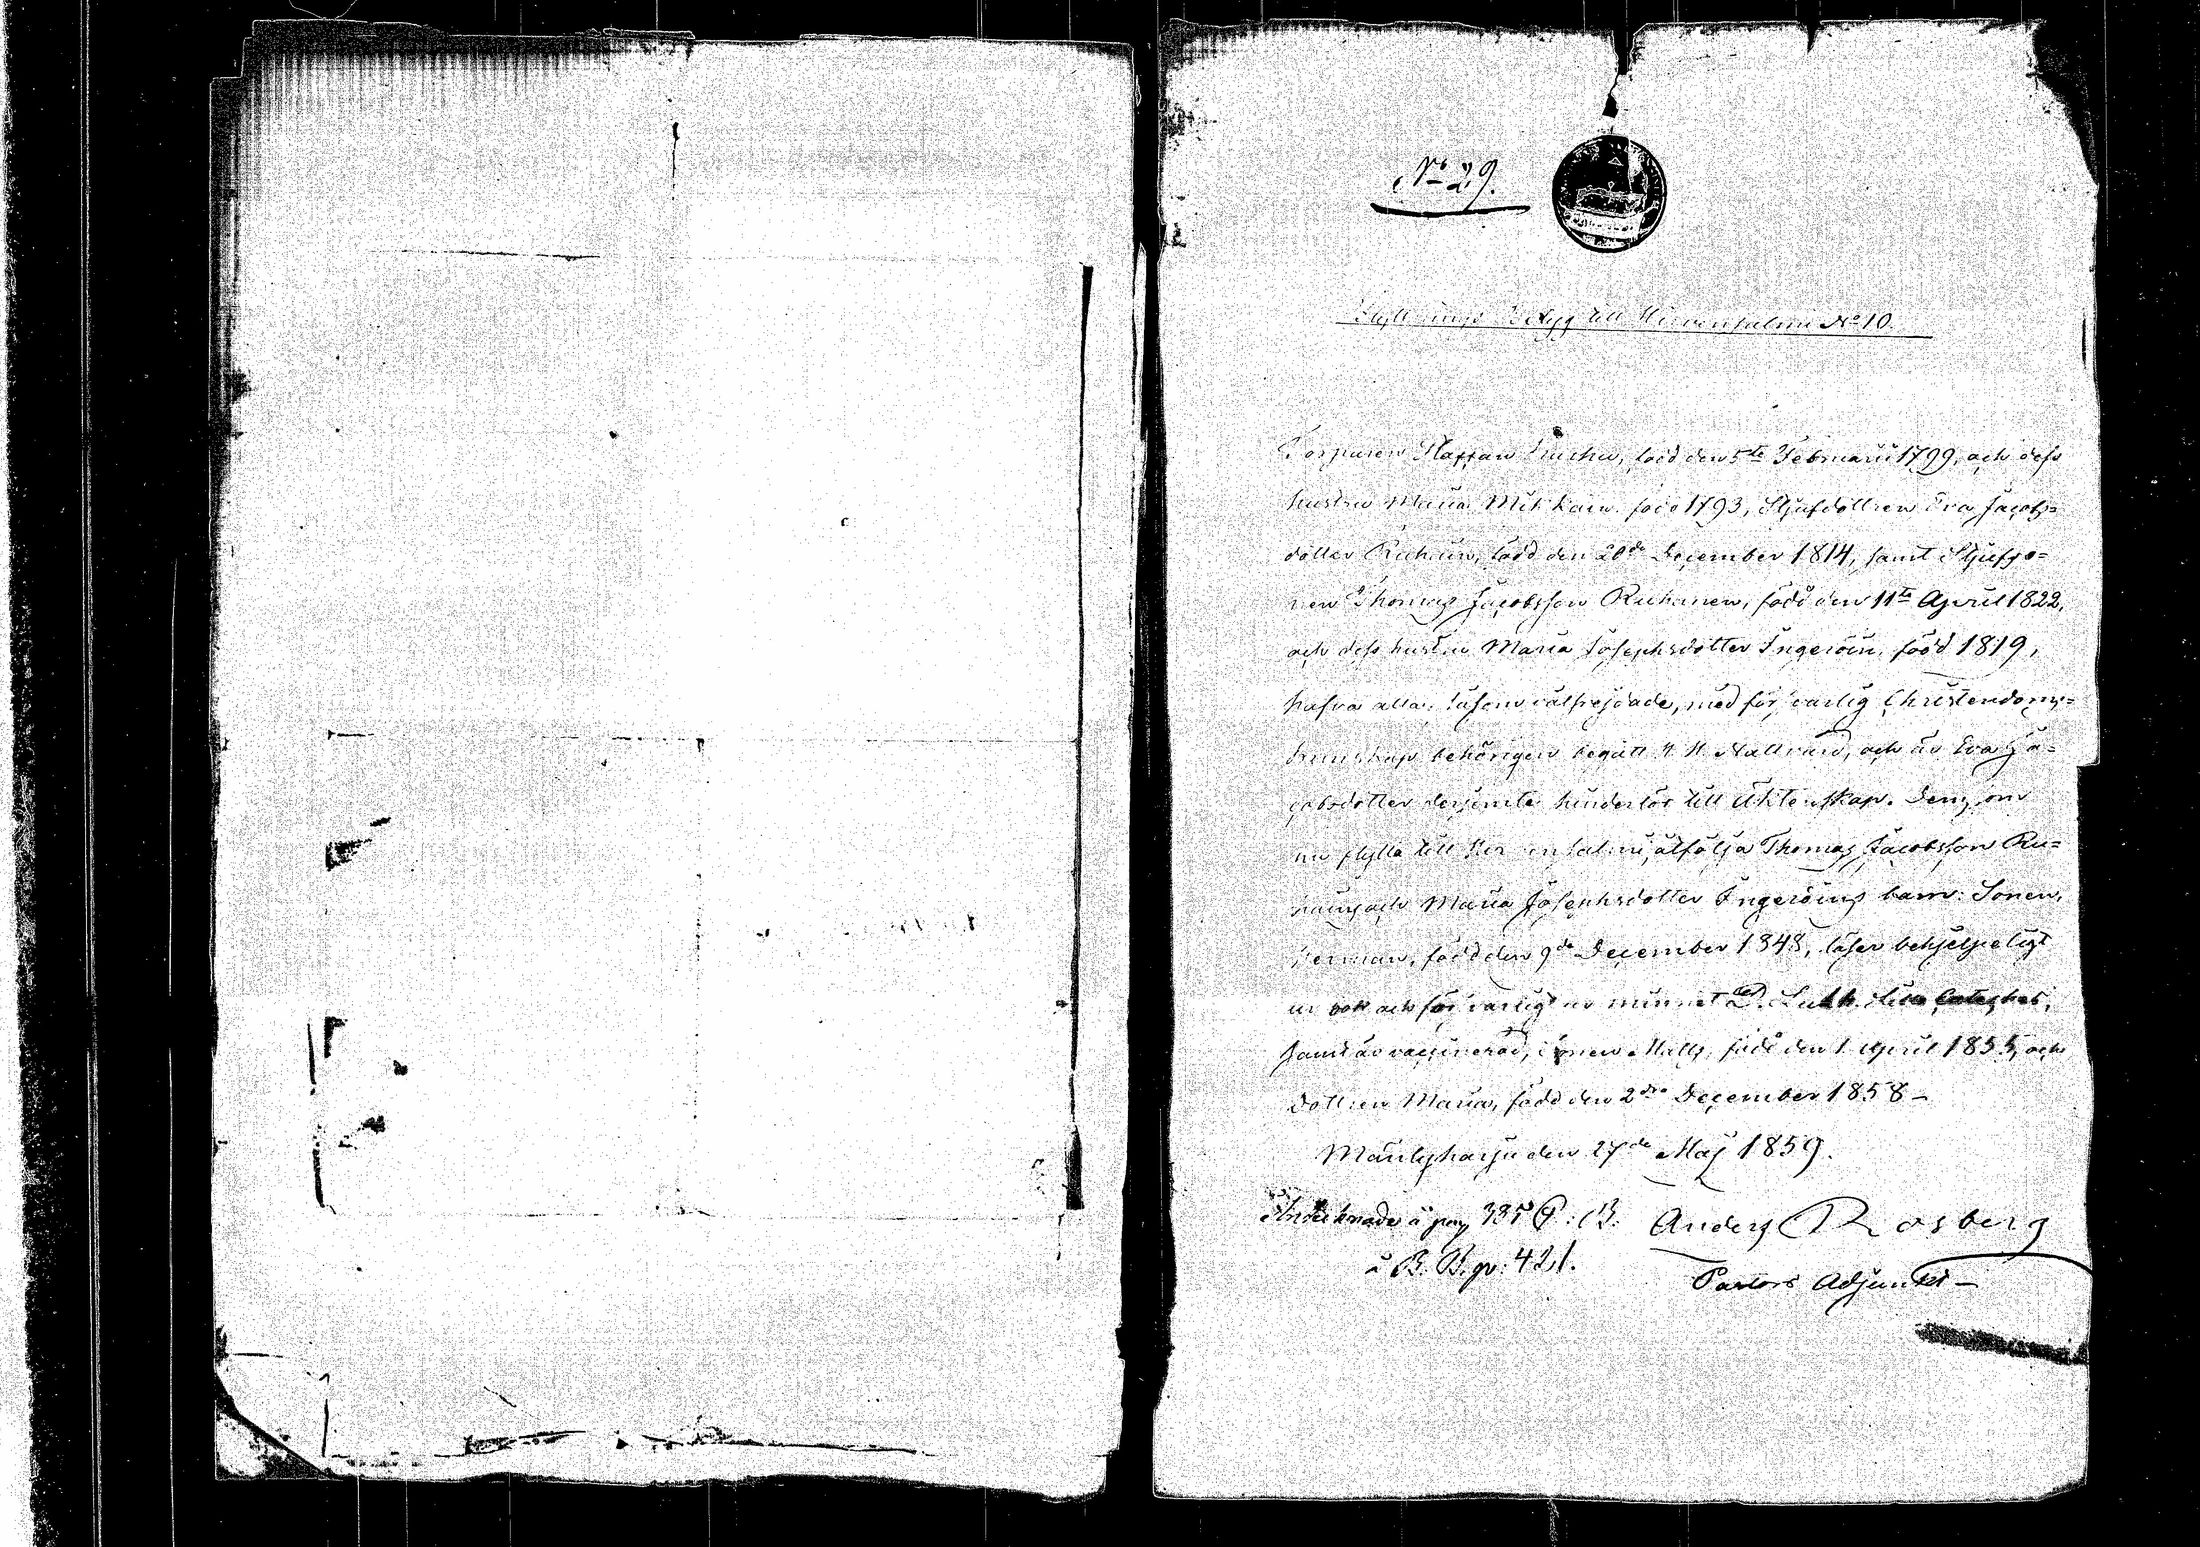 No 29.
Flyttnings Betyg till Hirvensalmi No 10.
Torparen Staffan född den 5te Februarii 1799, och dess
hustru Maria född 1793, Stjufdottren Eva Jacobs=
dotter Ruhain, född den 20de December 1814, samt Stjufso=
nen Thomas Jacobsson Ruhanen, född den 11te April 1822,
och dess hustru Maria Josephsdotter Ingeroin, född 1819,
hafva alla, välfrejdade, med försvarlig Christendoms=
kunskap behörigen begått H. H. Nattvard, och är Eva Ja=
cobsdotter derjemte hinderlös till äktenskap. Dem, som
nu flytta till Hirvensalmi, åtfölja Thomas Jacobsson Ru=
hains och Maria Josephsdotter Ingeroins barn: Sonen,
Herman, född den 9de December 1848, läser behjelpeligt
ur bok och försvarligt ur minnet D. Luth. Lilla Cateches,
samt är vaccinerad, Sonen Matts, född den 1 April 1855, och
dottren Maria, född den 2dra December 1858 –
Mäntyharju den 27de Maj 1859.
Anteknade å pag 385 Anders Rosberg
i B. B. p: 421.
Pastors Adjunkt –